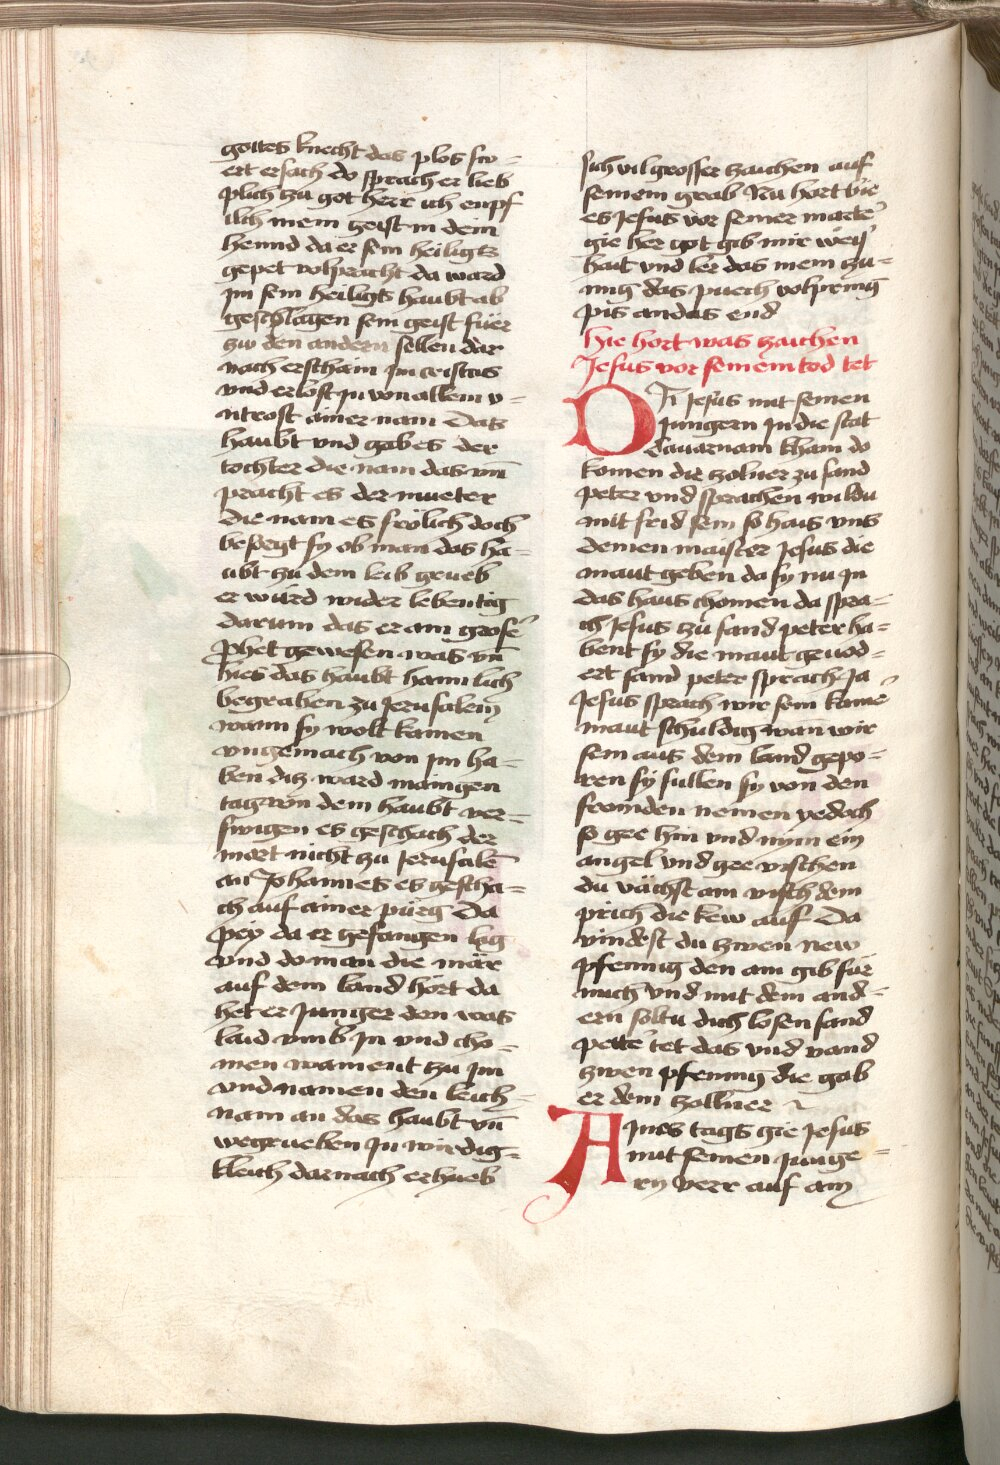 gottes knecht das plos sw-
ert ersach do sprach er lieb
plich zu got herr ich enpf
ilch mein geist in dein
hennd da er sein heiligts
gepet volpracht da ward
Jm sein heiligs haubt ab
geschlagen sein geist füer
zw den andern sellen dar
nach erschain Jm cristus
vnd erlost Jn von allem v-
ntrost ainer nam Datz
haubt vnd gab es der
tochter die nam das vn̄
pracht es der mueter
die nam es frölich doch
besorgt sy ob man das ha-
ubt zu dem leib grueb
er würd wider lebentig
darum das er ain grose
phet gewesen was vn̄
hies das haubt haimlich
begraben zu Jerusalem
wann sy wolt kainen
vngemach von Jm ha-
ben ditz ward maingen
tag von dem haubt ver-
swigen es geschach der
mort nicht zu Jerusalē
an Johannes es gescha-
ch auf ainer pürg Da
pey da er gefangen lag
vnd do man die mär
auf dem land hört da
het er Junger den was
laid vmb Jn vnd cho-
men wainent zu Jm
vnd namen den leich-
nam an das haubt vn̄
wegrueben Jn wirdig-
kleich darnach erhueb
sich vil grosser zaichen auf
seinem grab Nu hort wie
es Jesus vor seiner marter
gie her got gib mir weis
hait vnd ler das mein zu-
nig das puech volpring
pis an das end
Hie hort was zaichen
Jesus vor seinem tod tet
DA Jesus mit seinen
Jungern Jn die stat
Cauarnam kham do
komen die zolner zu sand
peter vnd sprachen wildu
mit frid sein so hais vns
deinen maister Jesus die
maut geben da sy nu Jn
das haus chomen da spra-
ch Jesus zu sand peter ha-
bent sy die maut geuod-
ert sand peter sprach Ja
Jesus sprach wir sein kaine
maut schuldig wan wir
sein aus dem land gepo-
ren sy sullen sy von den
fromden nemen yedoch
so gee hin vnd nym ein
angel vnd gee vischen
du vächst ain visch dem
prich die kew auf Da
vindest du zwen new
pfennig den ain gib für
mich vnd mit dem and-
ern soltu dich losen sand
peter tet das vnd vand
zwen pfennig die gab
er dem zollner
Aines tags gie Jesus
mit seinen Junge-
rn verr auf ain